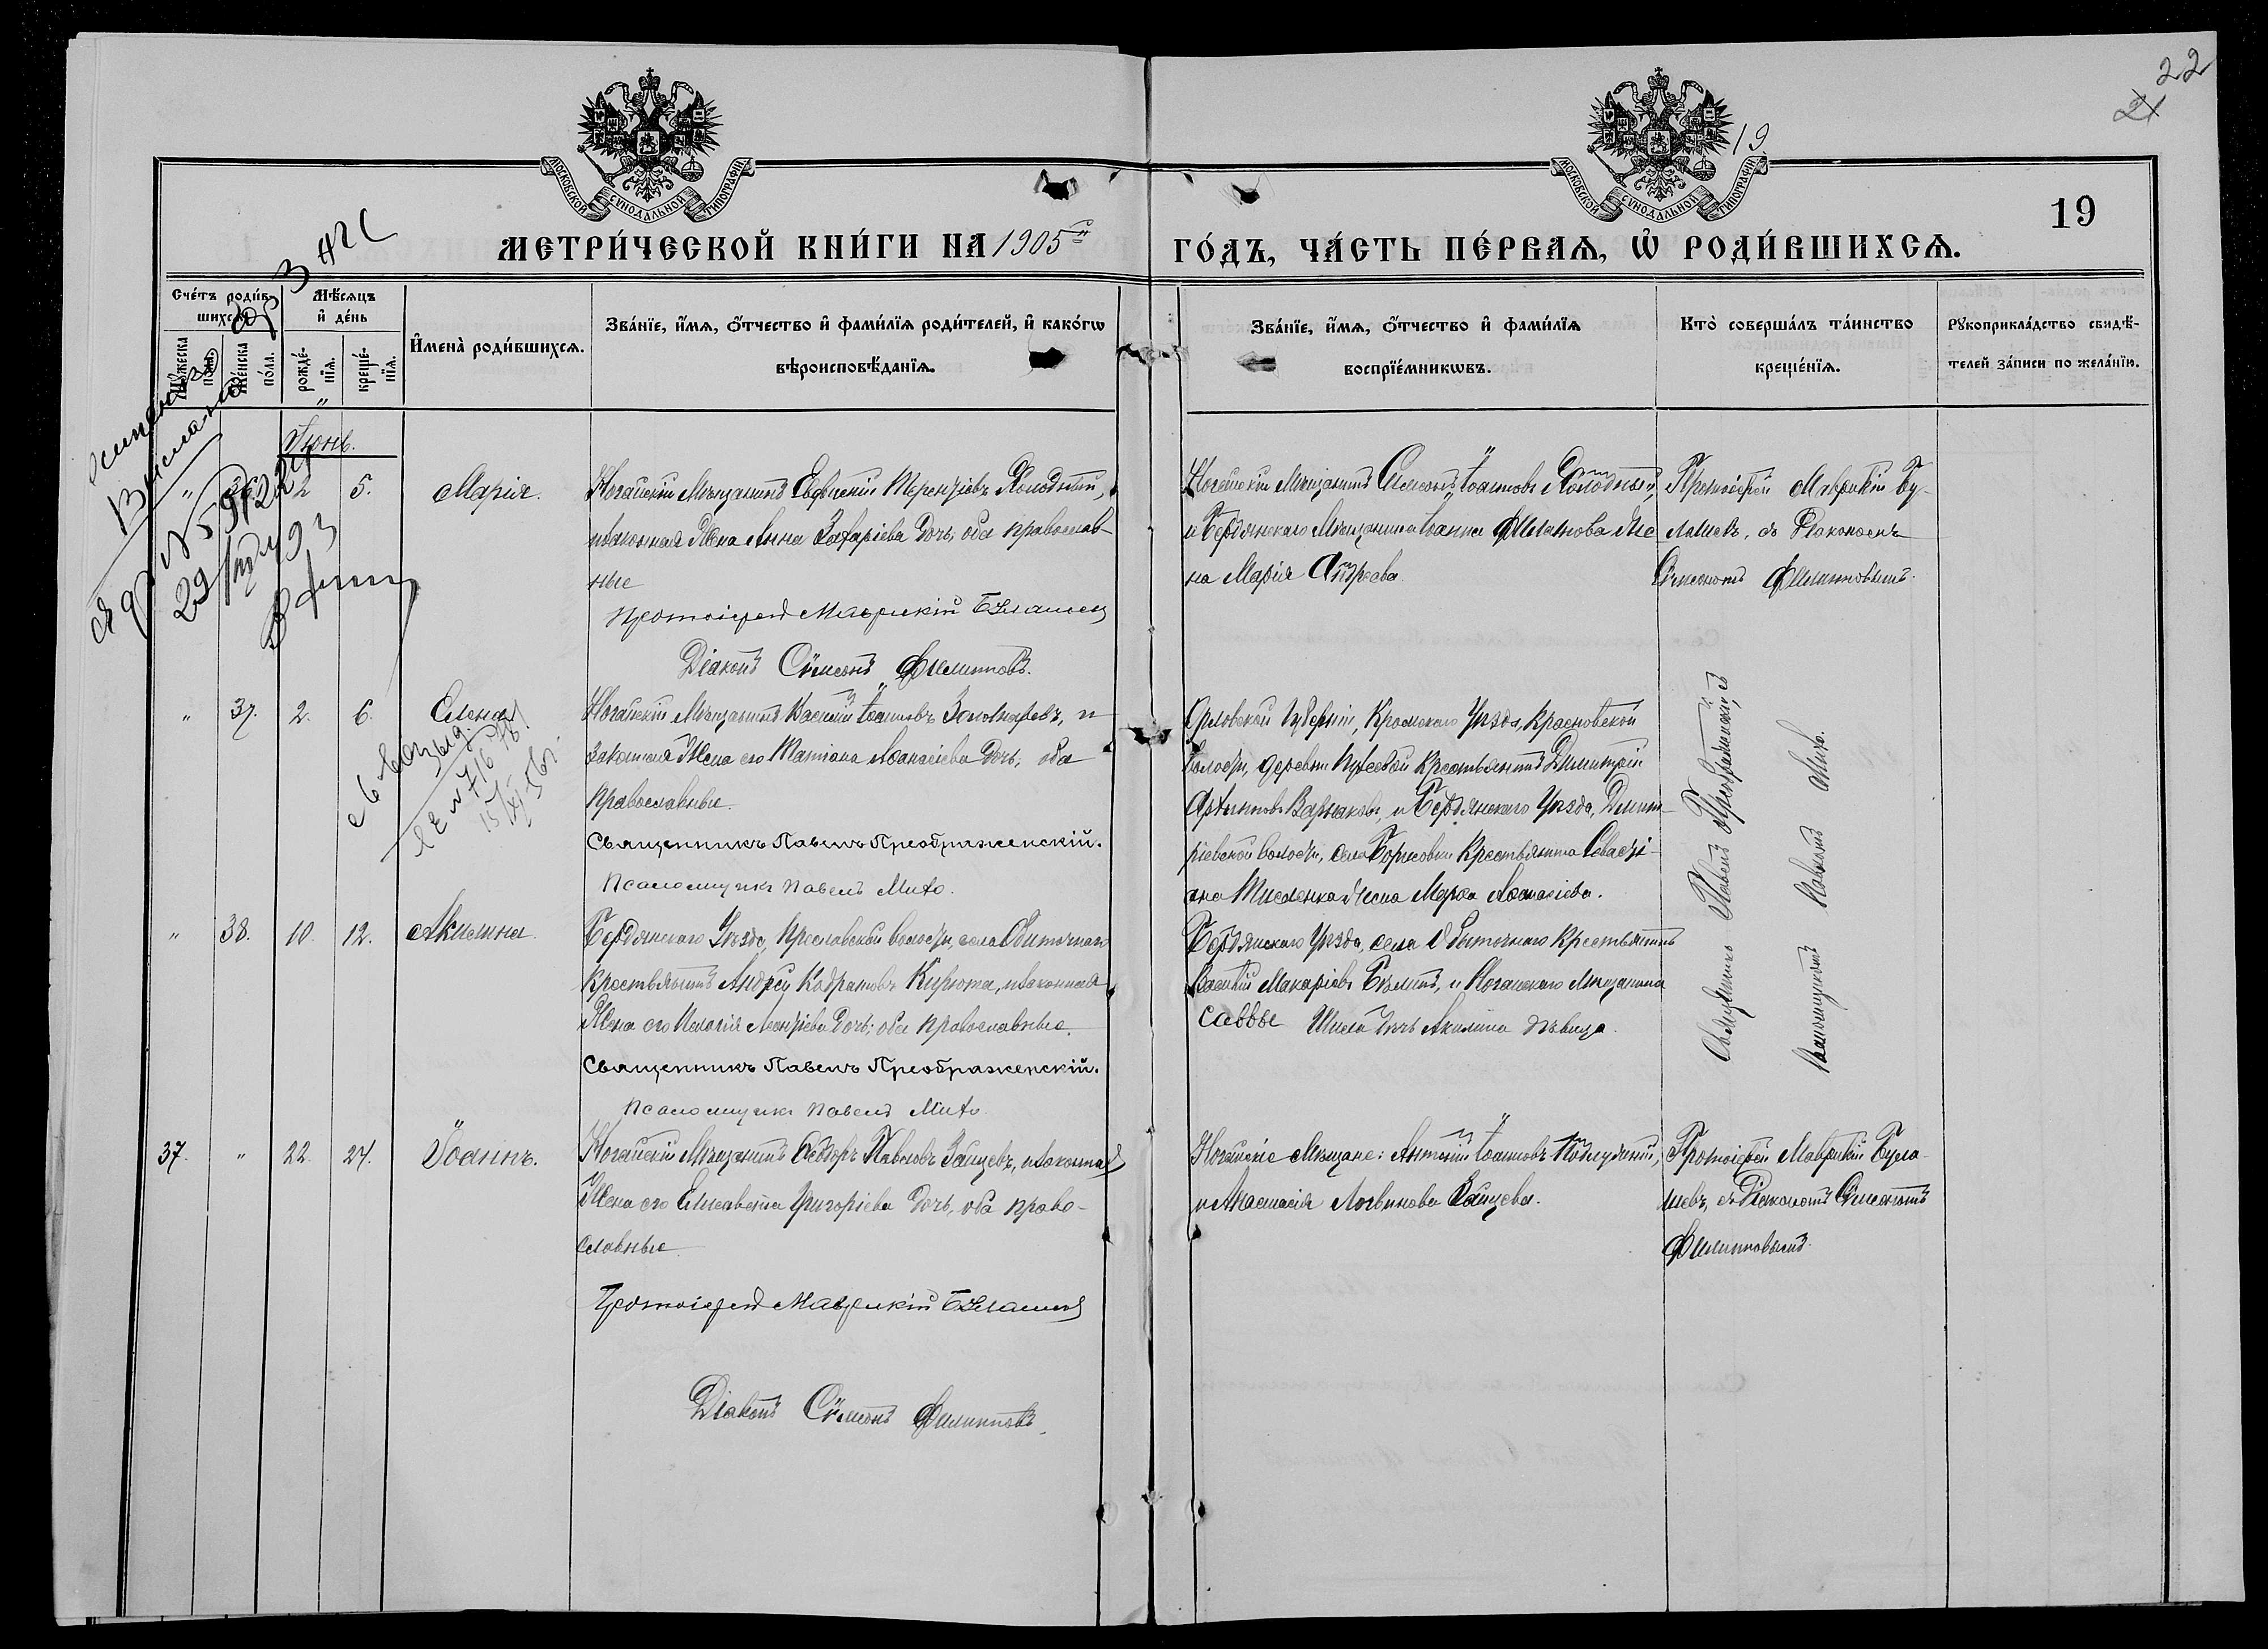 22
21
19.
19
МОСКОВСКОЙ СУНОДАЛЬНОЙ ТИПОГРАФІИ
МОСКОВСКОЙ СУНОДАЛЬНОЙ ТИПОГРАФІИ
МЕТРИ́ЧЕСКОЙ КНИ́ГИ НА 1905й
ГО́ДЪ, ЧА́СТЬ ПЕ́РВАѦ, Ѡ҆ РОДИ́ВШИХСѦ.
Сче́тъ роди́в-
шихсѧ
Мѣ́сѧцъ
и҆ де́нь
Мꙋ́жеска по́ла.
Же́нска по́ла.
рожде́-
нїѧ.
креще́-
нїѧ.
И҆мена̀ роди́вшихсѧ.
Зва́нїе, и҆́мѧ, ѻ҆́тчество и҆ фами́лїѧ роди́телей, и҆ како́гѡ
вѣроисповѣ́данїѧ.
Зва́нїе, и҆́мѧ, ѻ҆́тчество и҆ фами́лїѧ
воспрїе́мникѡвъ.
Кто̀ соверша́лъ та́инство
креще́нїѧ.
Рꙋкоприкла́дство свидѣ́-
телей за́писи по жела́нїю.
Іюнь.
" 36. 2 5. Марія.
Ногайскій Мѣщанинъ Евѳимій Терентіевъ Холодный,
и законная Жена Анна Захаріева дочь, оба православ-
ные
Протоіерей Маврикій Булашевъ
Діаконъ Сѷмеонъ Филипповъ.
Ногайскій Мѣщанинъ Сѷмеонъ Іоанновъ Холодный,
и Бердянскаго Мѣщанина Іоанна Филиппова Же
на Марія Андреева
Протоіерей Маврикій Бу-
лашевъ, съ Діакономъ
Сѷмеономъ Филипповымъ.
" 37. 2. 6. Елена
Ногайскій Мѣщанинъ Василій Іоанновъ Золотаревъ, и
законная Жена его Татіана Аѳанасіева дочь, оба
православные.
Священникъ Павелъ Преображенскій.
Псаломщикъ Павелъ Михо.
Орловской Губерніи, Кромскаго Уѣзда,
волости, деревни крестьянинъ Димитрій
и Бердянскаго Уѣзда, Димит-
ріевской волости, села Борисовки крестьянина Севасті-
ана Жена Марѳа Аѳанасіева.
Священникъ Павелъ Преображенскій, съ
Псаломщикомъ Павломъ Михо.
" 38. 10. 12. Акилина
Бердянскаго Уѣзда, Преславской волости, села Обиточнаго
крестьянинъ Андрей Кодратовъ Кирюта, и законная
Жена его Пелагія дочь; оба православные.
Священникъ Павелъ Преображенскій.
Псаломщикъ Павелъ Михо.
Бердянскаго Уѣзда, села Обиточнаго крестьянинъ
Василій Макаріевъ и Ногайскаго Мѣщанина
Саввы дочь Акилина дѣвица.
37. " 22. 24. Іоаннъ.
Ногайскій Мѣщанинъ Ѳеодоръ Павловъ Зайцевъ, и законная
Жена его Елисавета Григоріева дочь, оба право-
славные
Протоіерей Маврикій Булашевъ
Діаконъ Сѷмеонъ Филипповъ.
Ногайскіе Мѣщане: Антоній Іоанновъ
и Анастасія Логвинова Зайцева.
Протоіерей Маврикій Була-
шевъ, съ Діакономъ Сѷмеономъ
Филипповымъ.